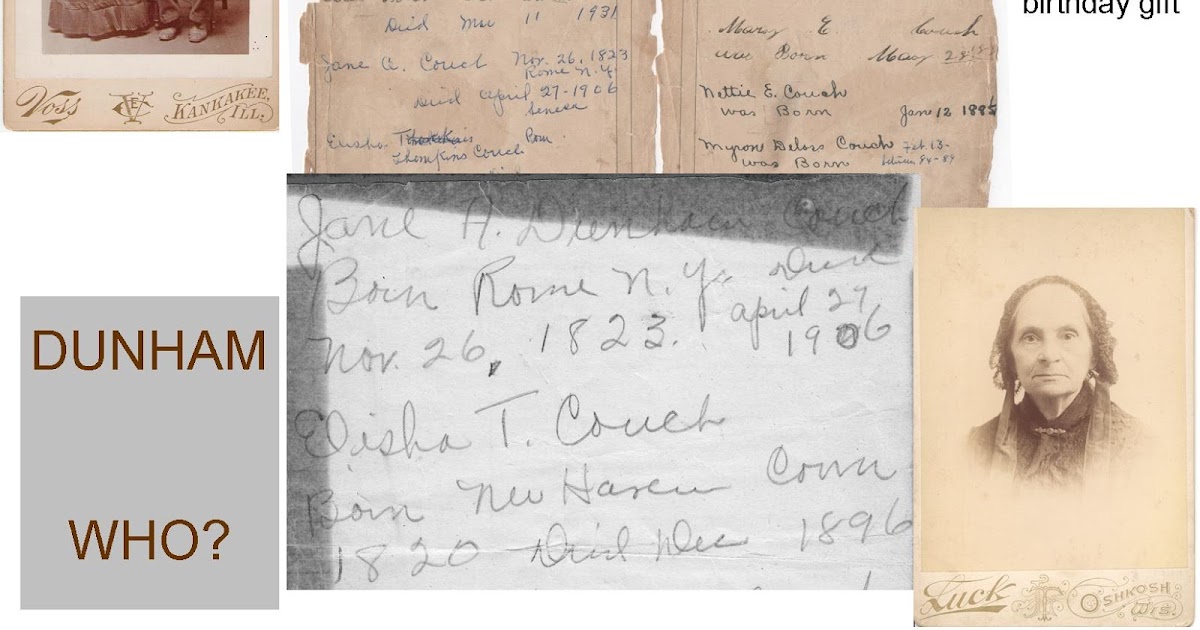 birthday gift
Voss
KANKAKEE,
ILL.
Died Mar 11 1931
Jane A. Couch Nov. 26, 1823
Rome N.Y.
Died April 27-1906
Seneca
Elisha Born
Thompkins Couch
Mary E. Couch
was Born May 28
Nettie E. Couch
was Born Jane 12 1885
Myron Deloss Couch Feb. 13-
was Born between 84-89
Jane H. Dunham Couch
Born Rome N.Y. Died
Nov. 26, 1823. april 27
1906
Elisha T. Couch
Born New Haven Conn
1820 Died Dec 1896
DUNHAM
WHO?
Luck
OSHKOSH
Wis.